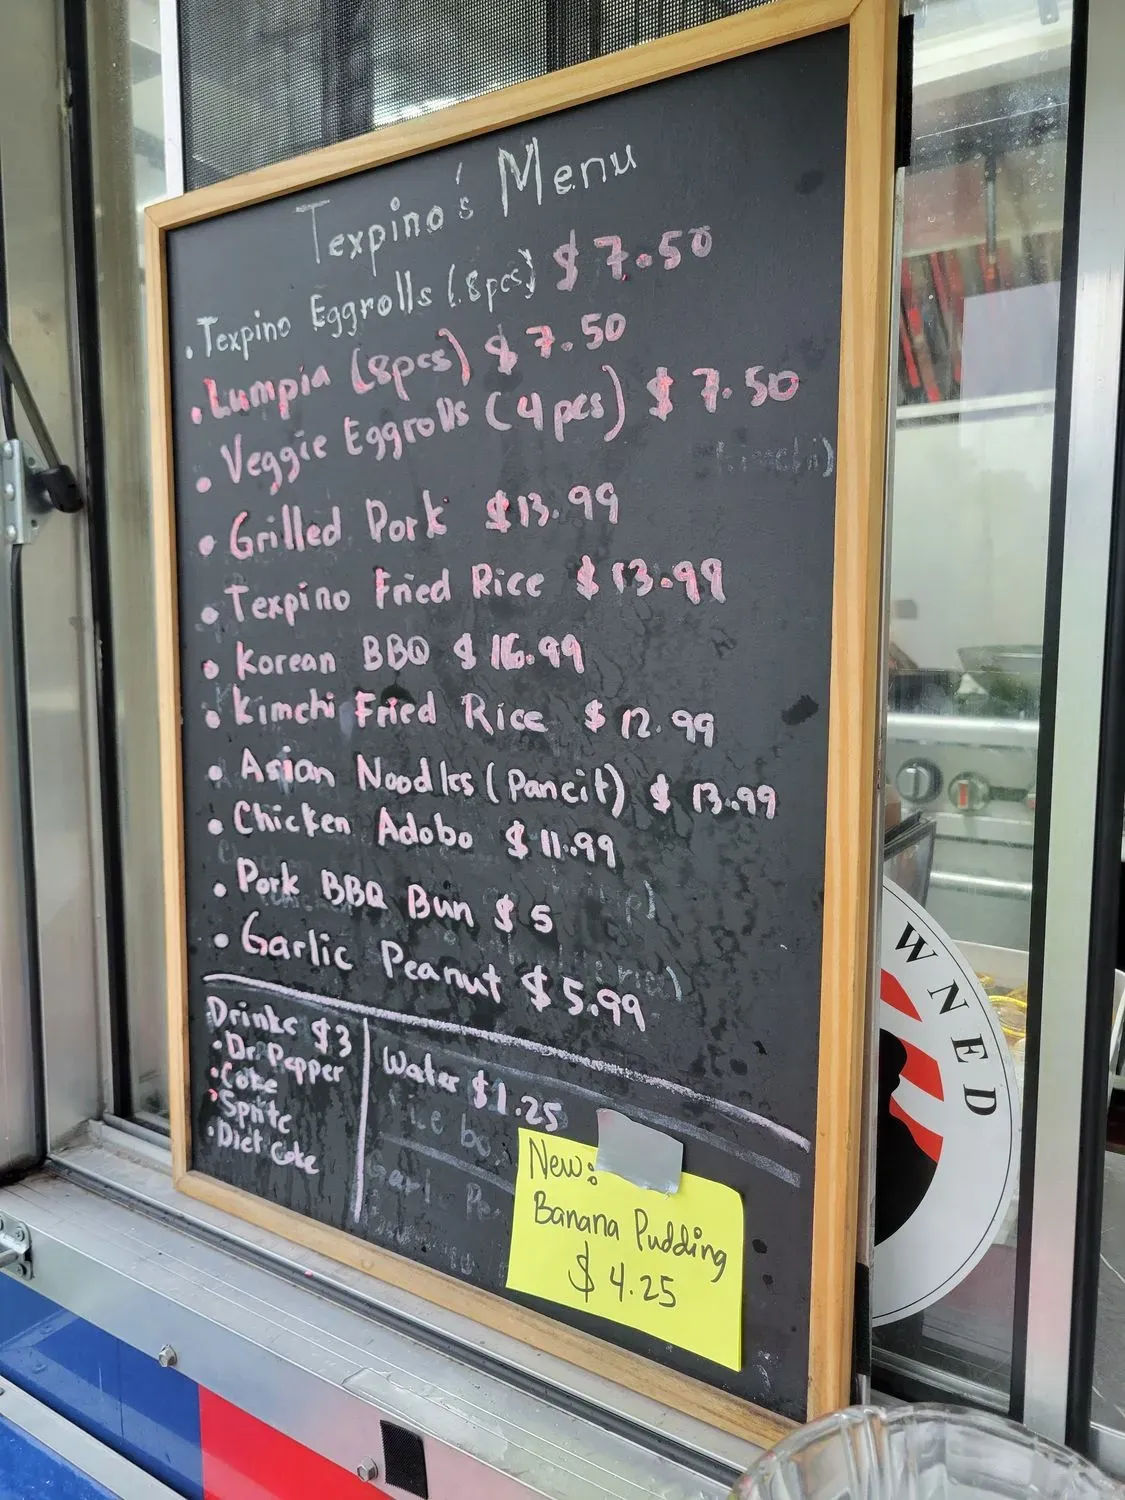 Texpino's Menu
• Texpino Eggrolls (8pcs) $7.50
• Lumpia (8pcs) $7.50
• Veggie Eggrolls (4pcs) $7.50
• Grilled Pork $13.99
• Texpino Fried Rice $13.99
• Korean BBQ $16.99
• Kimchi Fried Rice $12.99
• Asian Noodles (Pancit) $13.99
• Chicken Adobo $11.99
• Pork BBQ Bun $5
• Garlic Peanut $5.99
Drinks $3
• Dr. Pepper
• Coke
• Sprite
• Diet Coke
Water $1.25
New:
Banana Pudding
$4.25
WNED